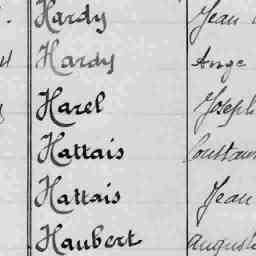 Hardy Jean
Hardy Ange
Harel Joseph
Hattais Constan
Hattais Jean
Haubert Auguste